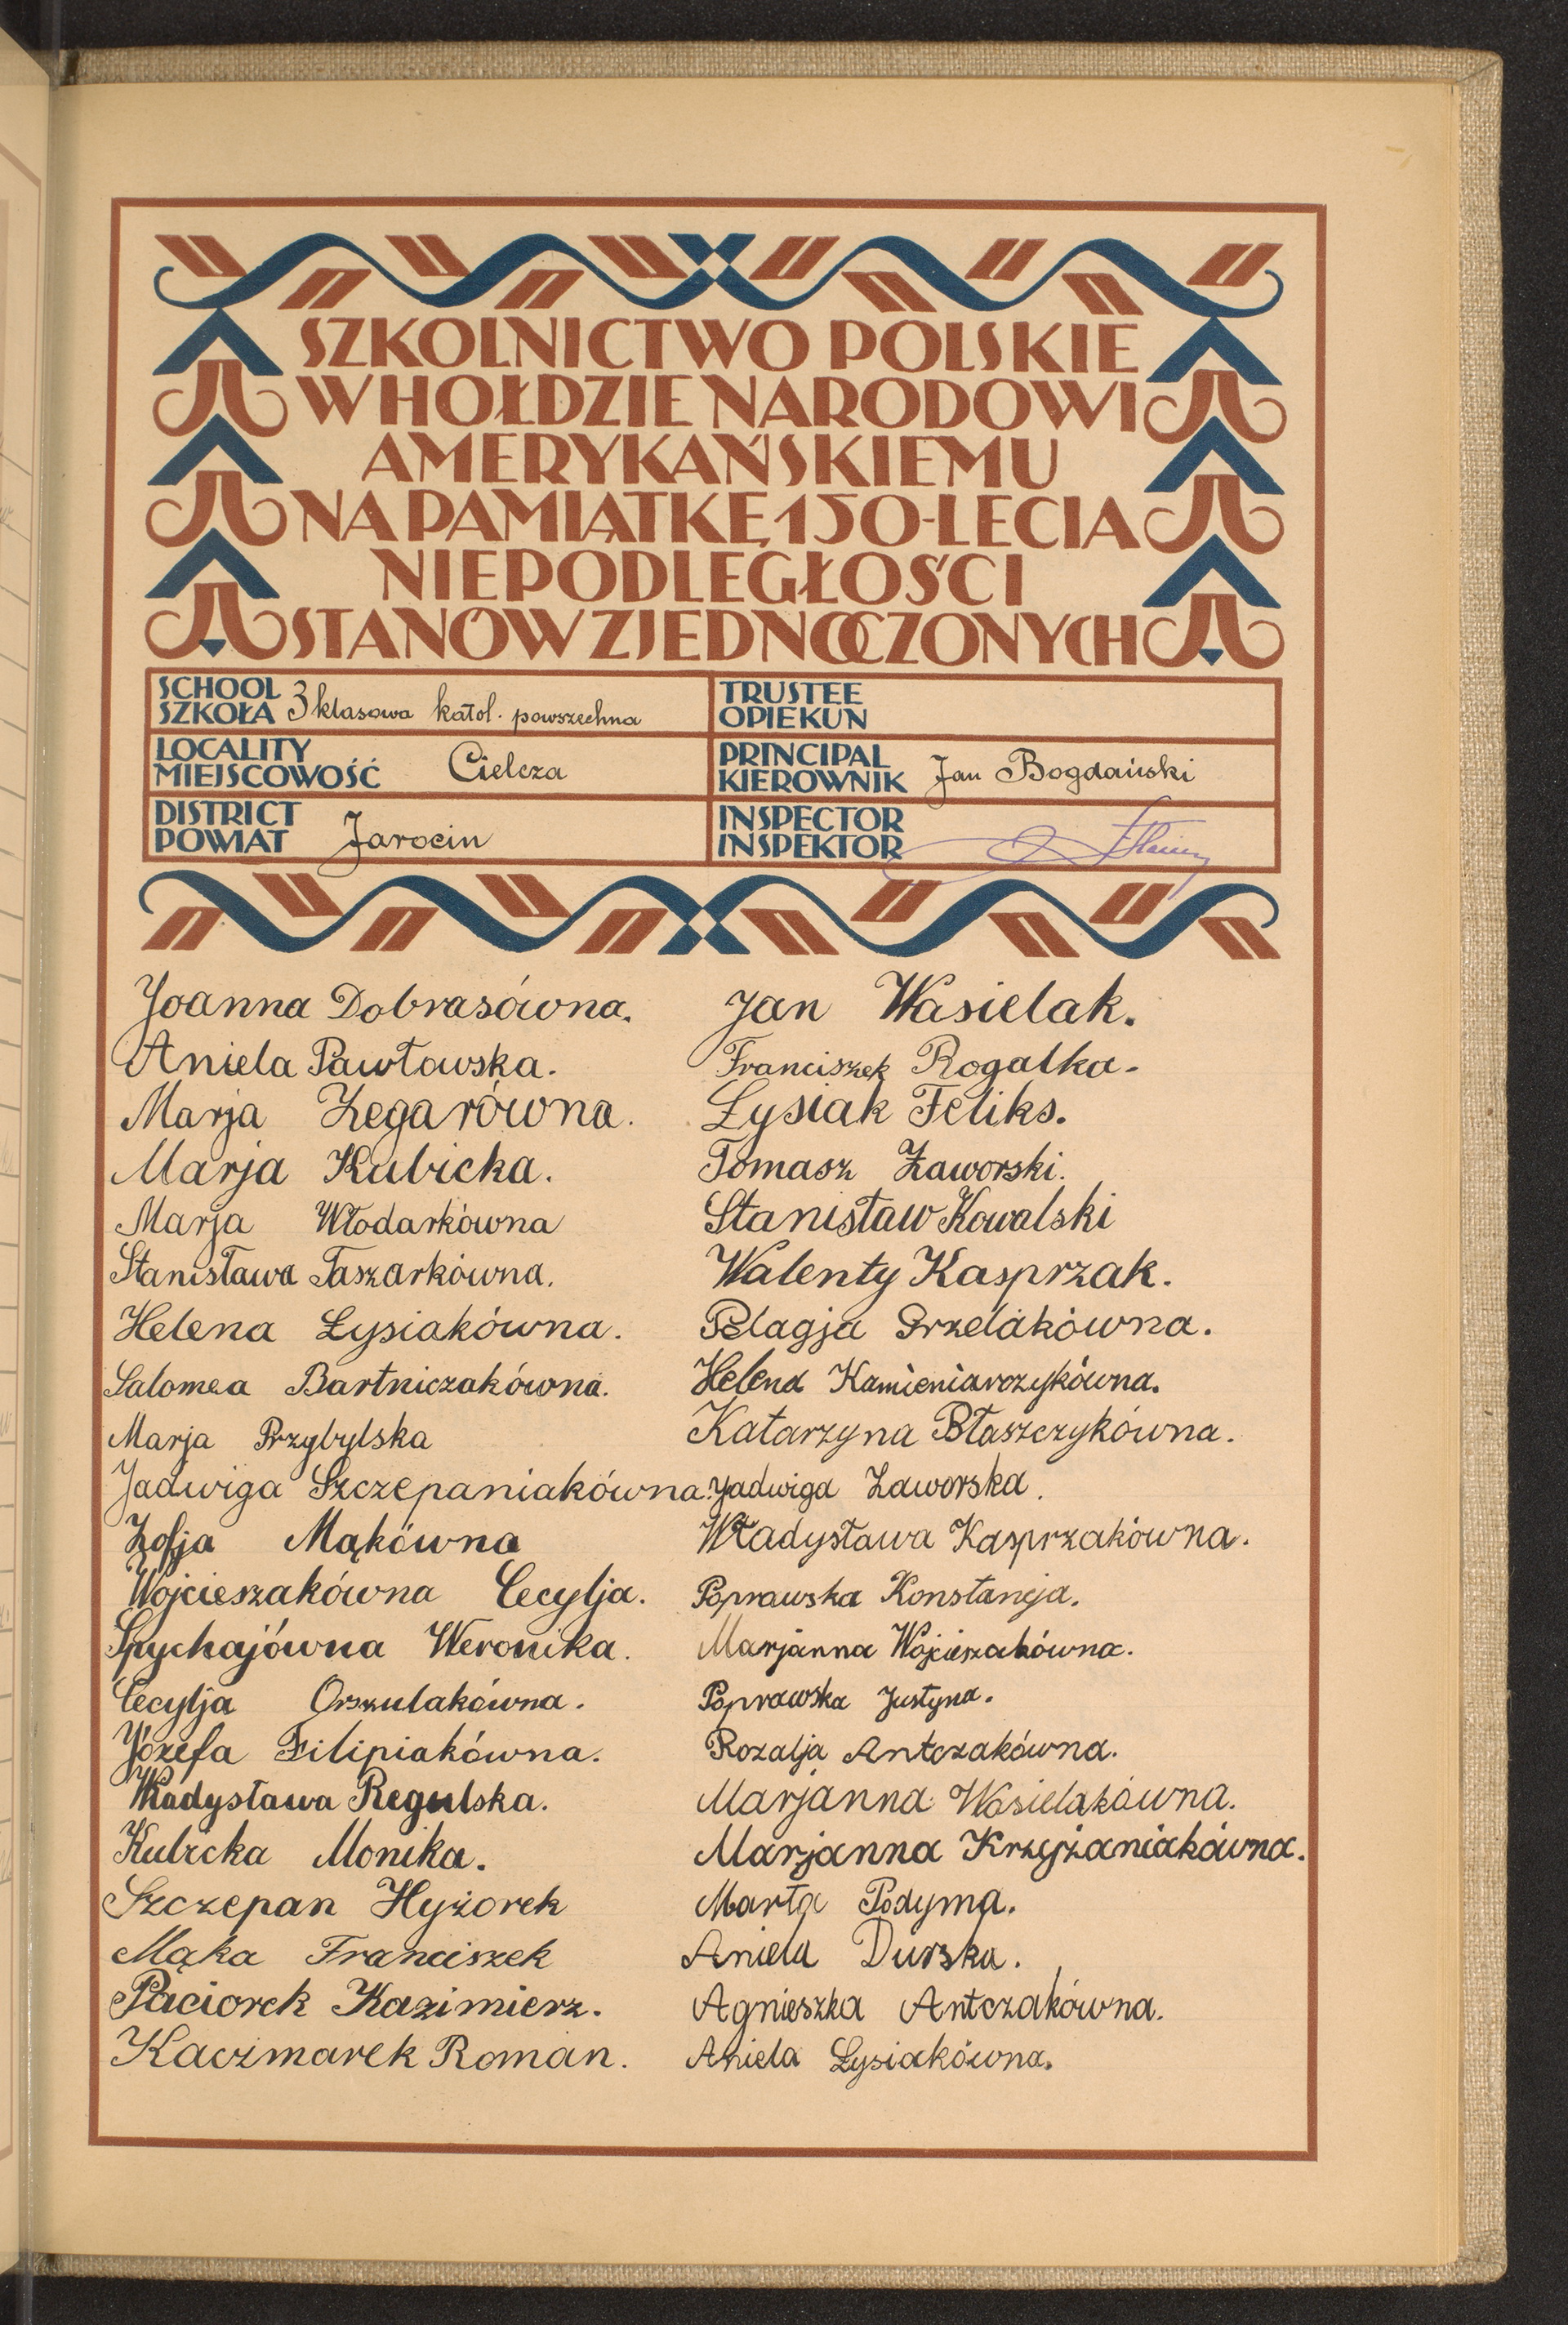 SZKOLNICTWO POLSKIE
W HOŁDZIE NARODOWI
AMERYKAŃSKIEMU
NA PAMIĄTKĘ 150-LECIA
NIEPODLEGŁOŚCI
STANÓW ZJEDNOCZONYCH
SCHOOL
SZKOŁA 3 klasowa katol. powszechna
TRUSTEE
OPIEKUN
LOCALITY
MIEJSCOWOŚĆ Cielcza
PRINCIPAL
KIEROWNIK Jan Bogdański
DISTRICT
POWIAT Jarocin
INSPECTOR
INSPEKTOR
Joanna Dobrasówna.
Aniela Pawłowska.
Marja Zegarówna.
Marja Kubicka.
Marja Włodarkówna
Stanisława Taszarkówna.
Helena Łysiakówna.
Salomea Bartniczakówna.
Marja Przybylska
Jadwiga Szczepaniakówna.
Zofja Mąkówna
Wojcieszakówna Cecylja.
Spychajówna Weronika.
Cecylja Orszulakówna.
Józefa Filipiakówna.
Władysława Regulska.
Kubicka Monika.
Szczepan Hyżorek
Mąka Franciszek
Paciorek Kazimierz.
Kaczmarek Roman.
Jan Wasielak.
Franciszek Rogalka.
Łysiak Feliks.
Tomasz Zaworski.
Stanisław Kowalski
Walenty Kasprzak.
Pelagja Grzelakówna.
Helena Kamieniarczykówna.
Katarzyna Błaszczykówna.
Jadwiga Zaworska.
Władysława Kasprzakówna.
Poprawska Konstancja.
Marjanna Wojcieszakówna.
Poprawska Justyna.
Rozalja Antczakówna.
Marjanna Wasielakówna.
Marjanna Krzyżaniakówna.
Marta Podyma.
Aniela Durska.
Agnieszka Antczakówna.
Aniela Łysiakówna.